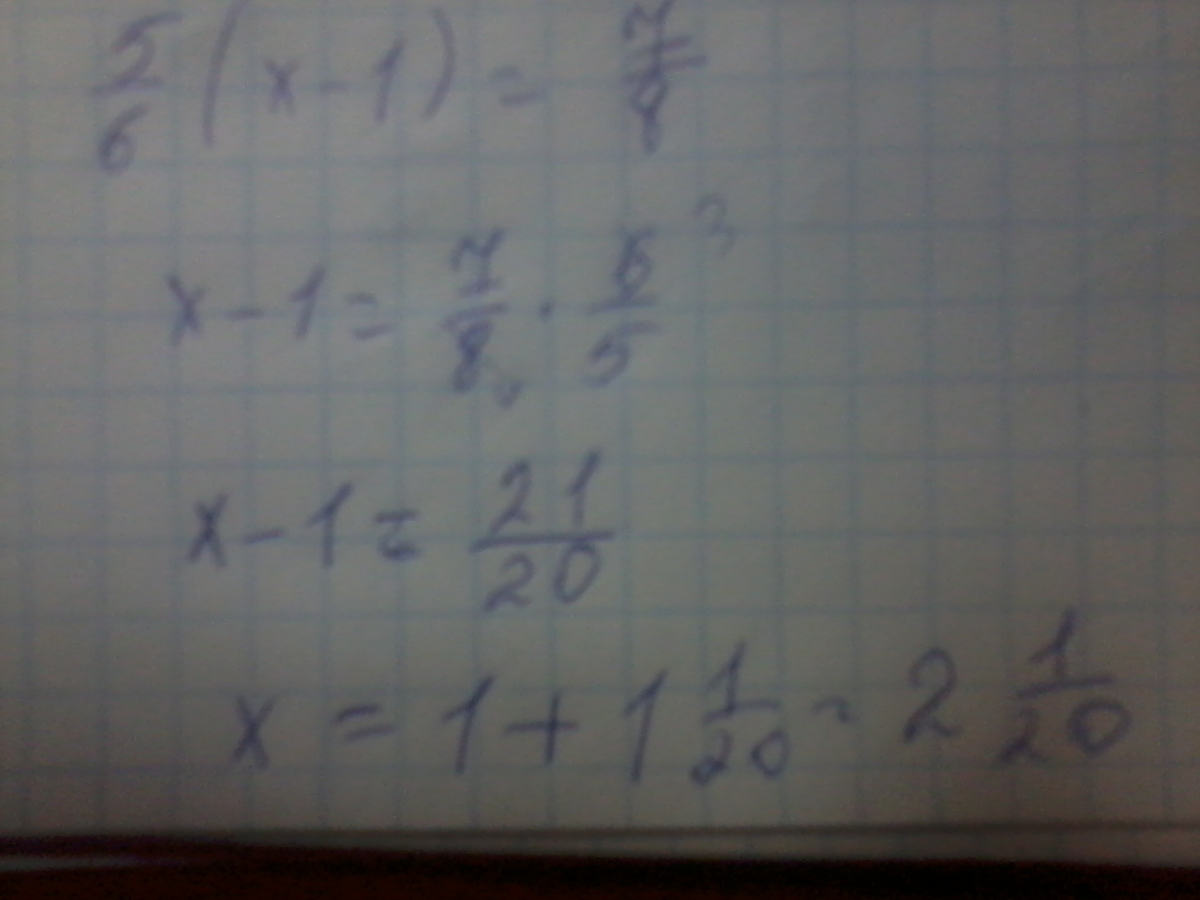 5/6 (x-1) = 7/8
x-1 = 7/8 · 6/5 3
x-1 = 21/20
x = 1+1 1/20 = 2 1/20